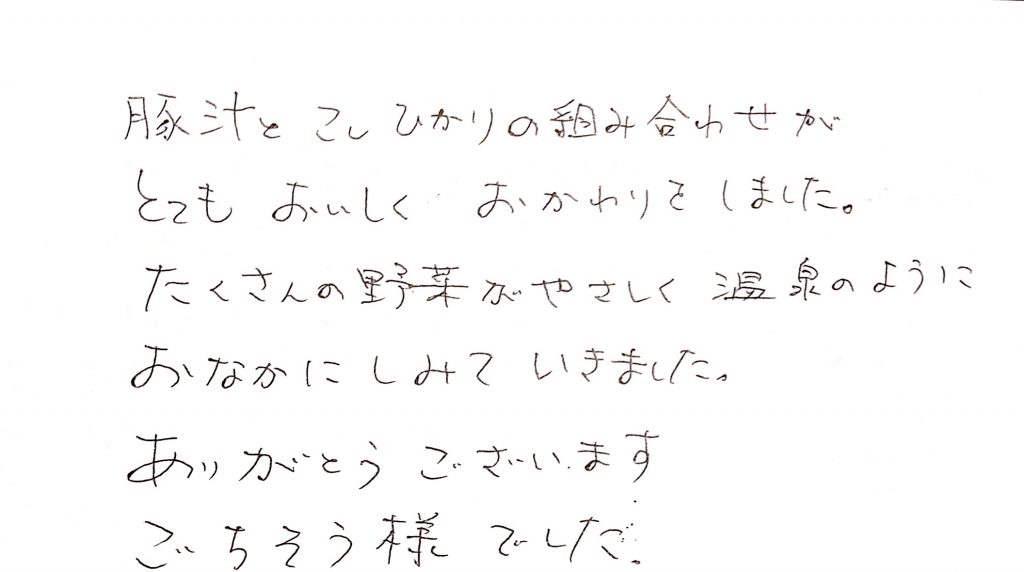 豚汁と こしひかりの組み合わせが
とても おいしく おかわりをしました。
たくさんの野菜がやさしく 温泉のように
おなかに しみて いきました。
ありがとう ございます
ごちそう様 でした。